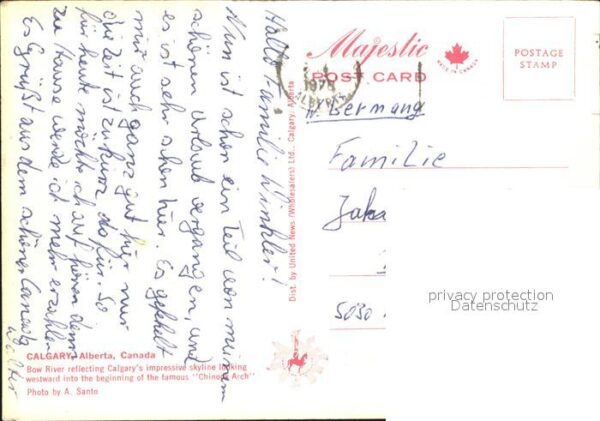 Hallo Familie Winkler!
Nun ist schon ein Teil von meinem
schönen Urlaub vergangen, und
es ist sehr schön hier. Es gefählt
mir auch ganz gut hir nur
die Zeit ist zu kurz dafür. So
für heute möchte ich auf hören denn
zu Hause werde ich mehr erzählen
Es Grüßt aus dem schönen Canada
Walter
Majestic
MADE IN CANADA
POST CARD
POSTAGE
STAMP
1978
Germany
Familie
5030
Dist. by United News (Wholesalers) Ltd., Calgary, Alberta
privacy protection
Datenschutz
CALGARY, Alberta, Canada
Bow River reflecting Calgary's impressive skyline looking
westward into the beginning of the famous "Chinook Arch"
Photo by A. Santo